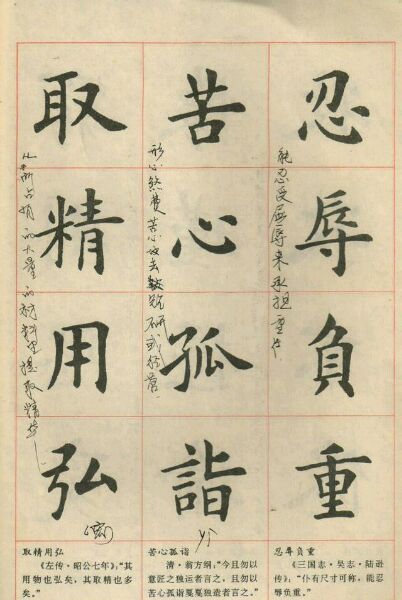 忍辱負重
能忍受屈辱来承担重任
苦心孤詣
取精用弘
从所占有的大量的材料里提取精华
忍辱负重
《三国志·吴志·陆逊
传》:“仆有尺寸可称,能忍
辱负重。”
苦心孤诣
清·翁方纲,“今且勿以
意匠之独运者言之,且勿以
苦心孤诣戛戛独造者言之。”
取精用弘
《左传·昭公七年》,“其
用物也弘矣,其取精也多
矣。”